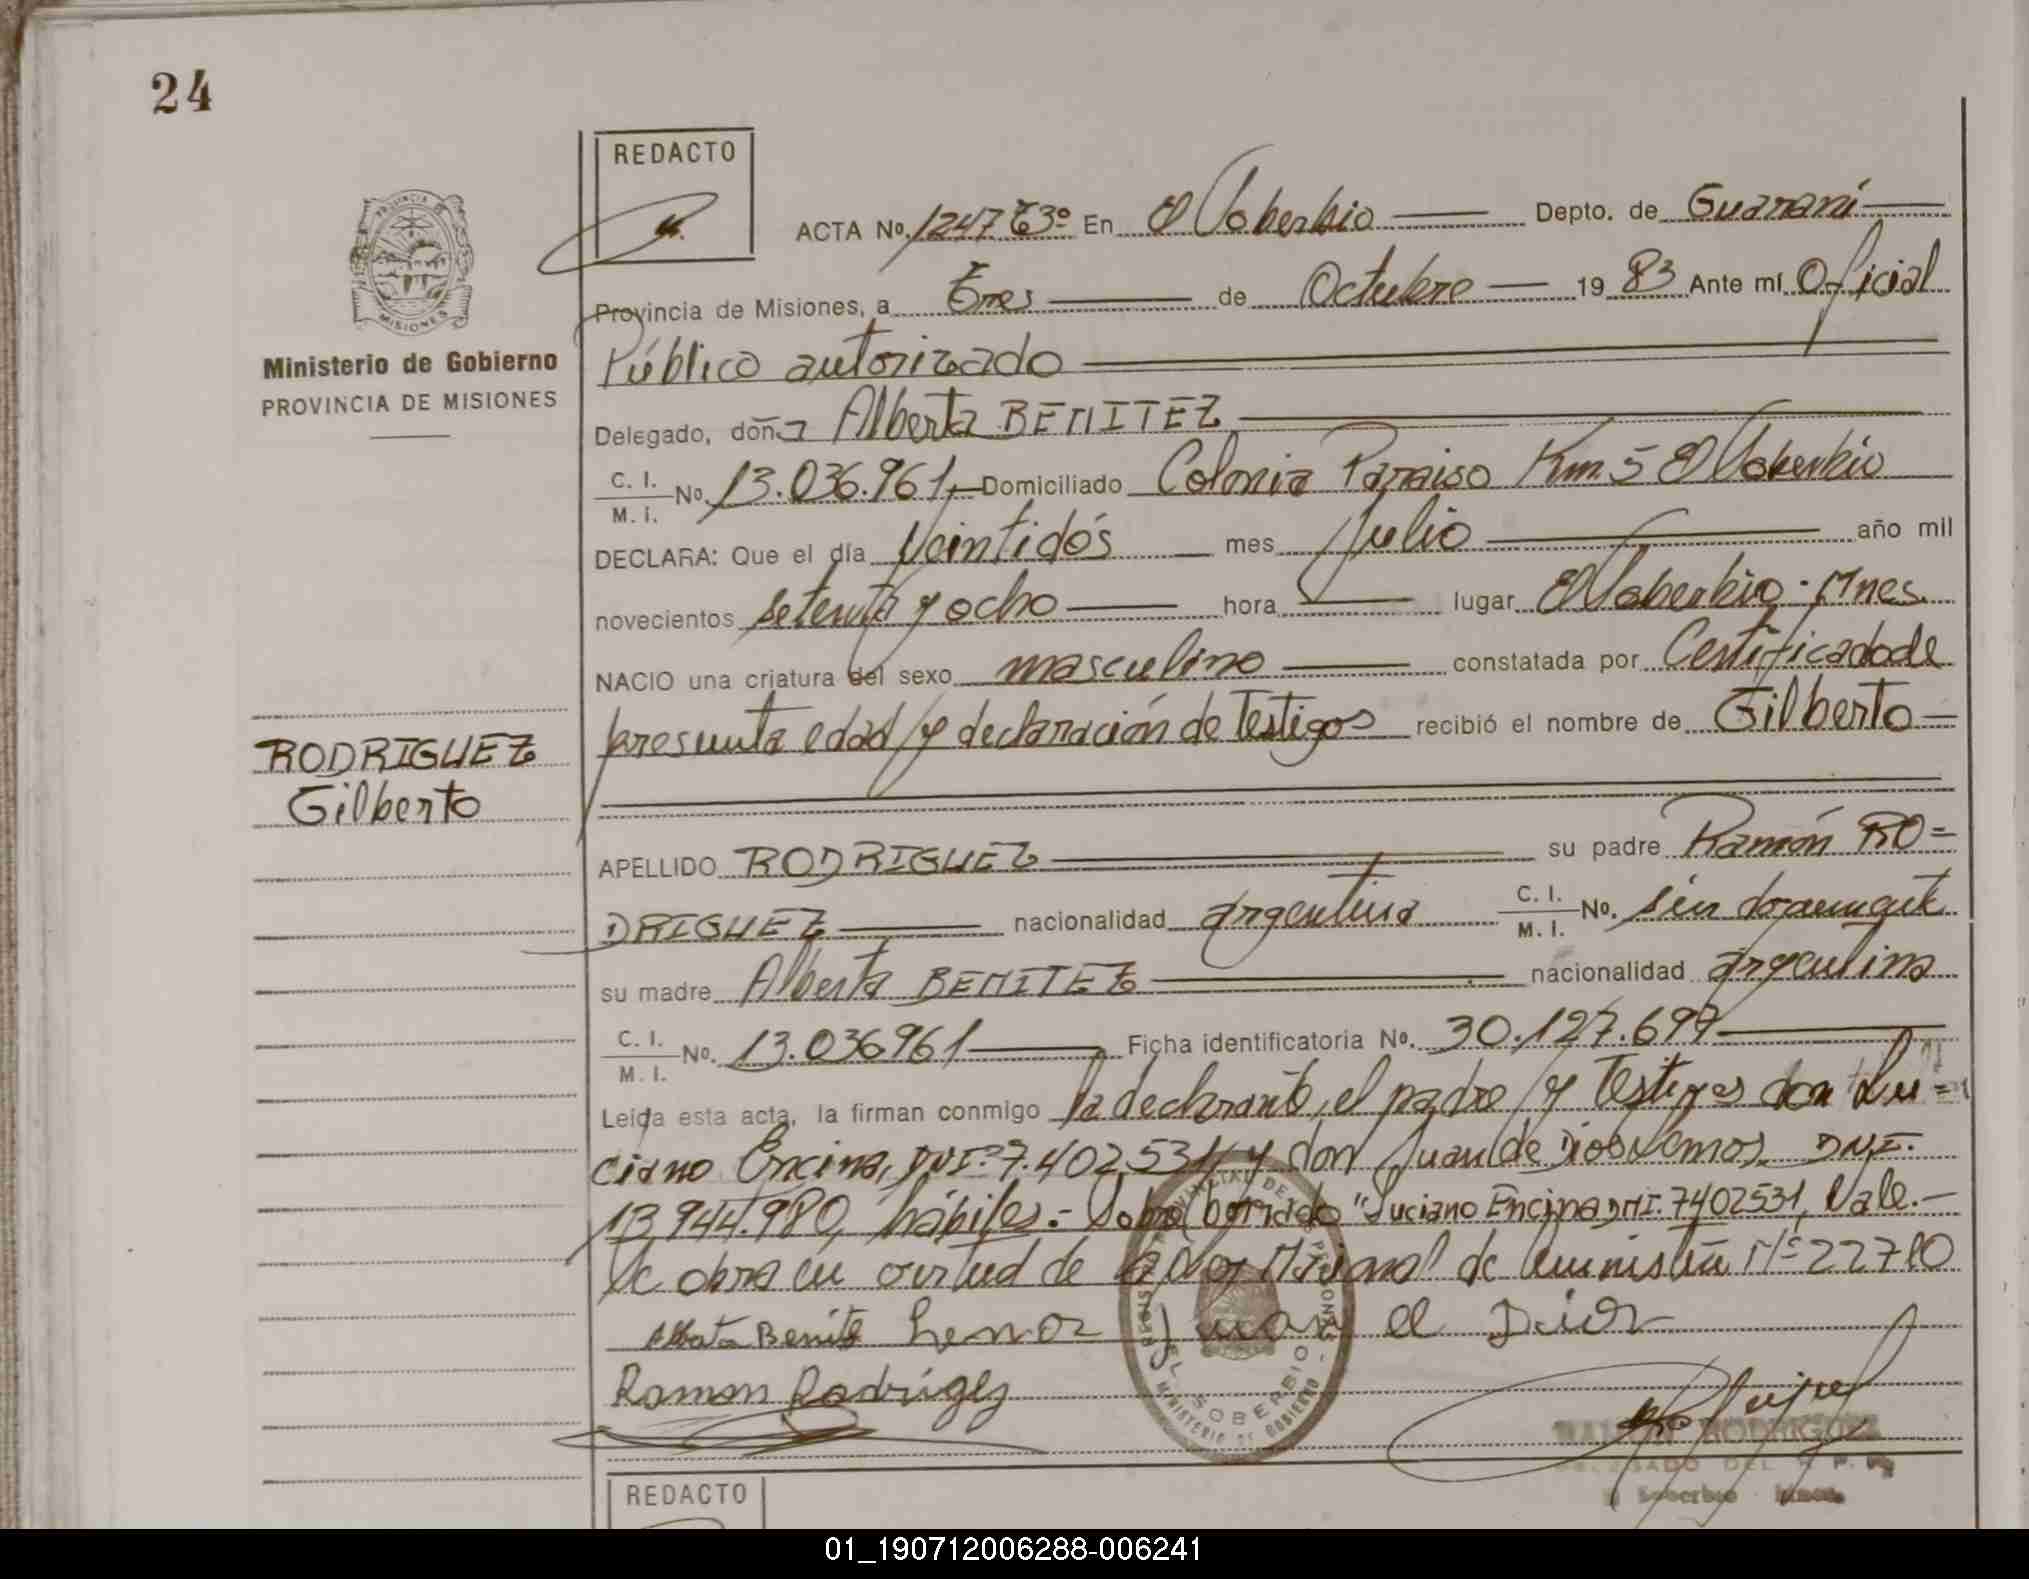 24
REDACTO
ACTA No. 124763º En El Soberbio Depto. de Guaraní
Provincia de Misiones, a Tres de Octubre 1983 Ante mí Oficial
Público autorizado
PROVINCIA DE
MISIONES
Ministerio de Gobierno
PROVINCIA DE MISIONES
Delegado, doña Alberta BENITEZ
C. I.
M. I. No. 13.036.961, Domiciliado Colonia Paraiso Km 5 El Soberbio
DECLARA: Que el día Veintidós mes Julio año mil
novecientos setenta y ocho hora lugar El Soberbio - Mnes.
NACIO una criatura del sexo masculino constatada por Certificado de
presunta edad y declaración de Testigos recibió el nombre de Gilberto
RODRIGUEZ
Gilberto
APELLIDO RODRIGUEZ su padre Ramón RO=
DRIGUEZ nacionalidad argentina C. I. M. I. No. sin documento
su madre Alberta BENITEZ nacionalidad argentina
C. I.
M. I. No. 13.036961 Ficha identificatoria No. 30.127.697
Leída esta acta, la firman conmigo la declarante, el padre y Testigos don Lu=
ciano Encina, DNI. 7.402531 y don Juan de Dios Lemos DNI.
13.944.980, hábiles.- Sobre borrado "Luciano Encina DNI. 7402531, Vale.-
Se obra en virtud de la Ley Nacional de Amnistía Nº 22710
Alberta Benite Lemos Juan de Dios
Ramon Rodriguez
REGISTRO PROVINCIAL DE LAS PERSONAS
EL SOBERBIO
MINISTERIO DE GOBIERNO
RAMON RODRIGUEZ
DELEGADO DEL R. P.
El Soberbio Mnes.
REDACTO
01_190712006288-006241